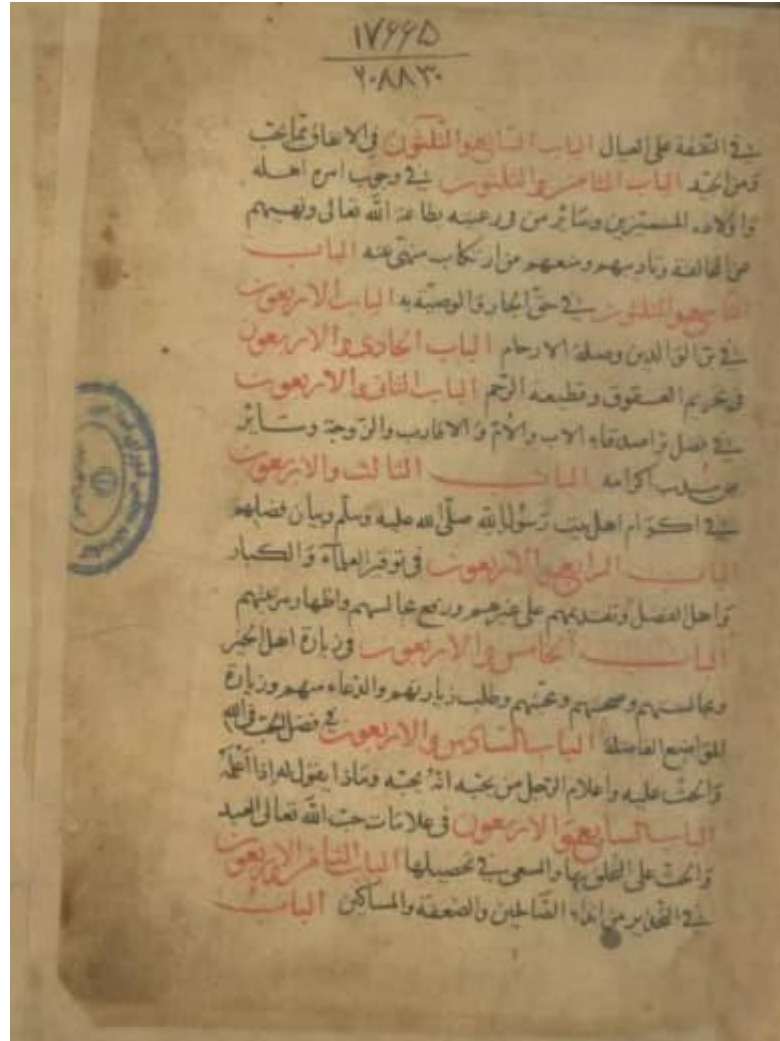 ١٧۶۶۵
٢٠٨٨٣٠
في النفقة على العيال الباب السابع والثلثون في الانفاق مما يحب
ومن الجيد الباب الثامن والثلثون في وجوب امره اهله
واولاده المميزين وسائر من في رعيته بطاعة الله تعالى ونهيهم
عن المخالفة وتاديبهم ومنعهم من ارتكاب منهى عنه الباب
التاسع والثلثون في حق الجار والوصية به الباب الاربعون
في بر الوالدين وصلة الارحام الباب الحادى والاربعون
في تحريم العقوق وقطيعة الرحم الباب الثانى والاربعون
في فضل بر اصدقاء الاب والام والاقارب والزوجة وسائر
من يندب اكرامه الباب الثالث والاربعون
في اكرام اهل بيت رسول الله صلى الله عليه وسلم وبيان فضلهم
الباب الرابع والاربعون في توقير العلماء والكبار
واهل الفضل وتقديمهم على غيرهم ورفع مجالسهم واظهار مرتبتهم
الباب الخامس والاربعون في زيارة اهل الخير
ومجالستهم وصحبتهم ومحبتهم وطلب زيارتهم والدعاء منهم وزيارة
المواضع الفاضلة الباب السادس والاربعون في فضل الحب في الله
والحث عليه واعلام الرجل من يحبه انه يحبه وماذا يقول له اذا اعلمه
الباب السابع والاربعون في علامات حب الله تعالى العبد
والحث على التخلق بها والسعى في تحصيلها الباب الثامن والاربعون
في التحذير من ايذاء الصالحين والضعفة والمساكين الباب